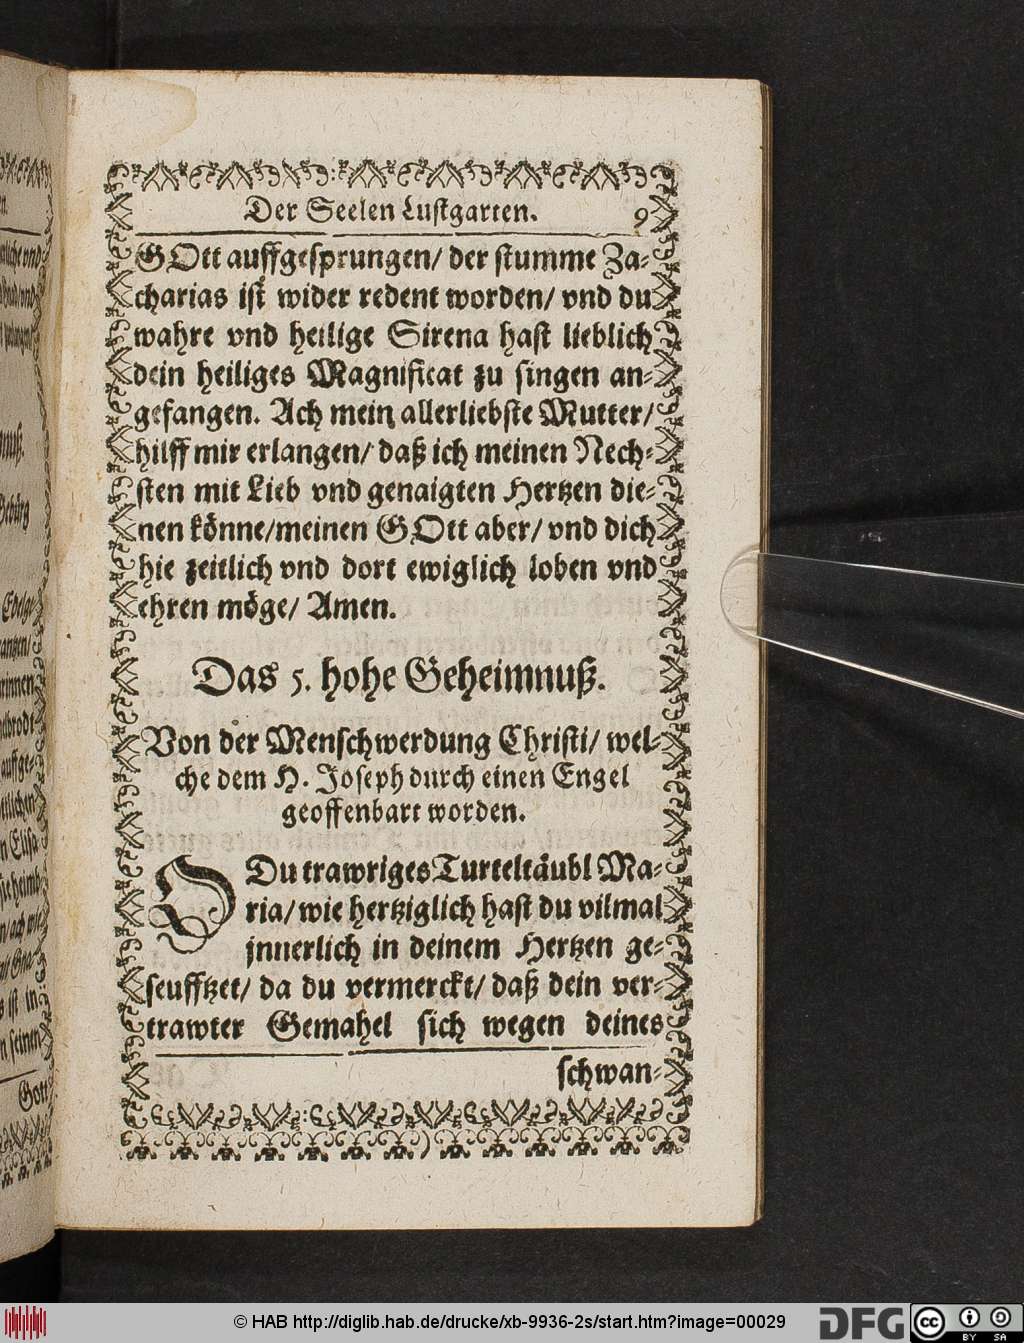 Der Seelen Lustgarten. 9
GOtt auffgesprungen/ der stumme Za-
charias ist wider redent worden/ vnd du
wahre vnd heilige Sirena hast lieblich
dein heiliges Magnificat zu singen an-
gefangen. Ach mein allerliebste Mutter/
hilff mir erlangen/ daß ich meinen Nech-
sten mit Lieb vnd genaigten Hertzen die-
nen könne/meinen GOtt aber/ vnd dich
hie zeitlich vnd dort ewiglich loben vnd
ehren möge/ Amen.
Das 5. hohe Geheimnuß.
Von der Menschwerdung Christi/ wel-
che dem H. Joseph durch einen Engel
geoffenbart worden.
O Du trawriges Turteltäubl Ma-
ria/ wie hertziglich hast du vilmal
jnnerlich in deinem Hertzen ge-
seufftzet/ da du vermerckt/ daß dein ver-
trawter Gemahel sich wegen deines
schwan-
© HAB http://diglib.hab.de/drucke/xb-9936-2s/start.htm?image=00029
DFG
cc BY SA